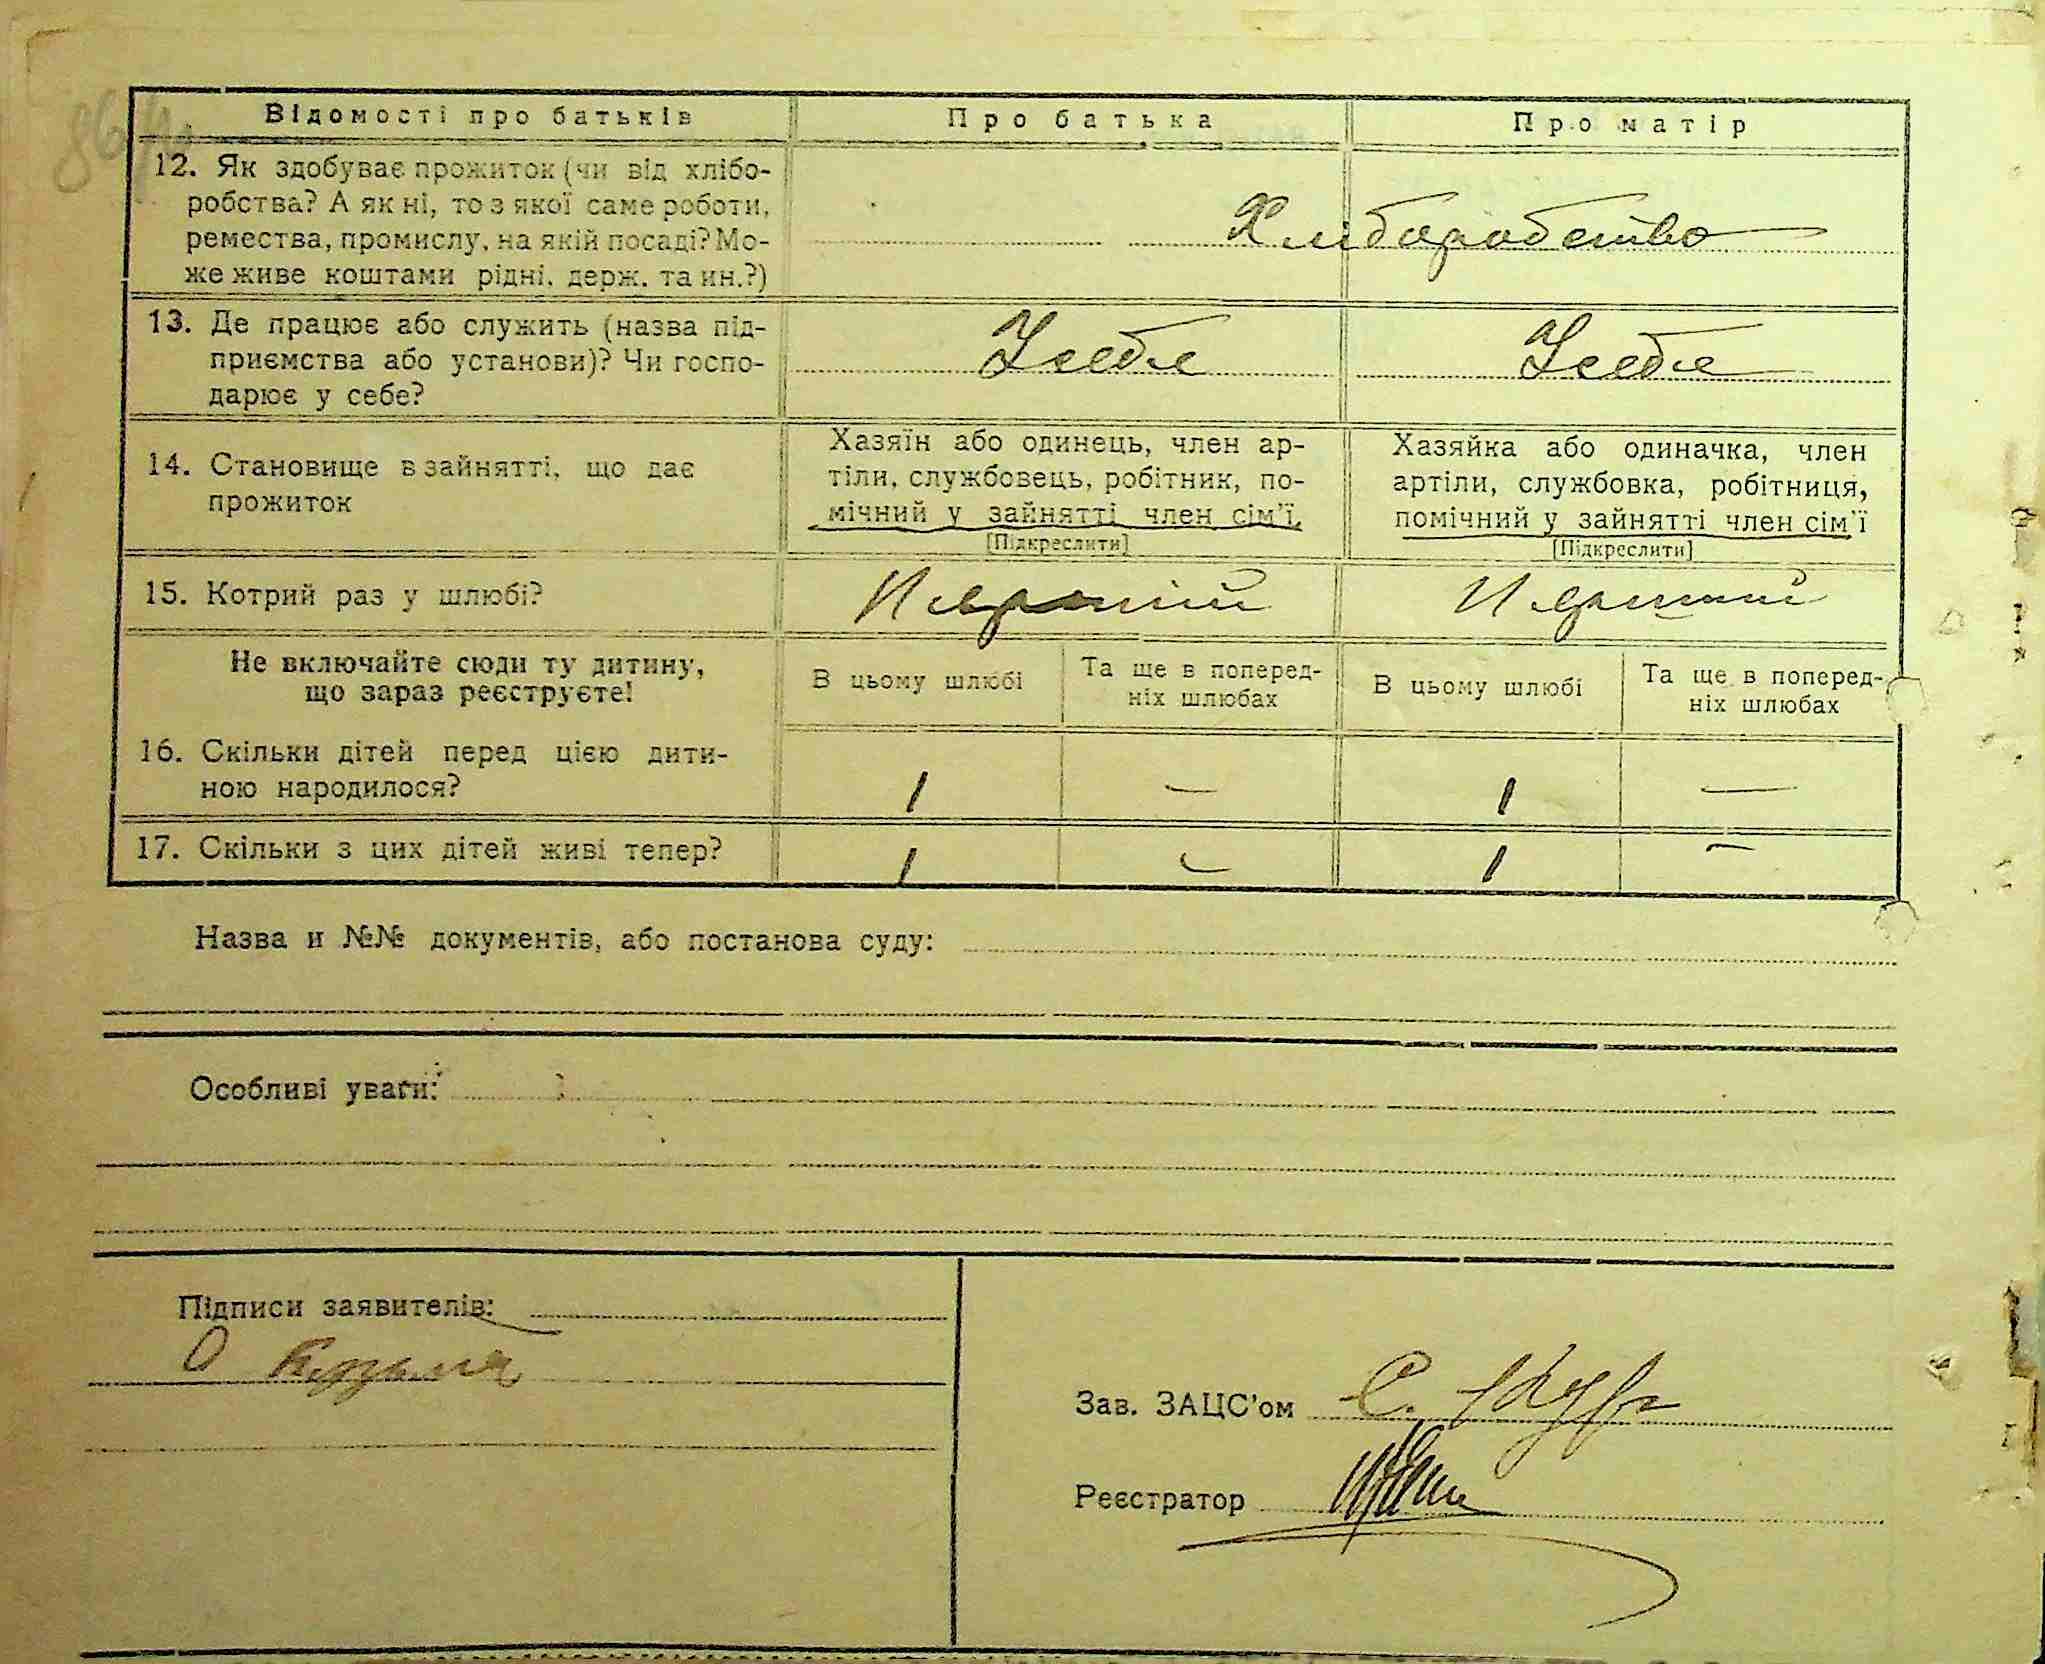 Відомості про батьків Про батька Про матір
12. Як здобуває прожиток (чи від хлібо-
робства? А як ні, то з якої саме роботи,
ремества, промислу, на якій посаді? Мо-
же живе коштами рідні, держ. та ин.?)
Хліборобство
13. Де працює або служить (назва під-
приємства або установи)? Чи госпо-
дарює у себе?
У себе У себе
14. Становище в зайнятті, що дає
прожиток
Хазяїн або одинець, член ар-
тіли, службовець, робітник, по-
мічний у зайнятті член сім'ї,
[Підкреслити]
Хазяйка або одиначка, член
артіли, службовка, робітниця,
помічний у зайнятті член сім'ї
[Підкреслити]
15. Котрий раз у шлюбі? Перший Перший
Не включайте сюди ту дитину,
що зараз реєструєте!
В цьому шлюбі
Та ще в поперед-
ніх шлюбах
В цьому шлюбі
Та ще в поперед-
ніх шлюбах
16. Скільки дітей перед цією дити-
ною народилося?
1 — 1 —
17. Скільки з цих дітей живі тепер? 1 — 1 —
Назва и №№ документів, або постанова суду:
Особливі уваги:
Підписи заявителів:
Зав. ЗАЦС'ом С.
Реєстратор